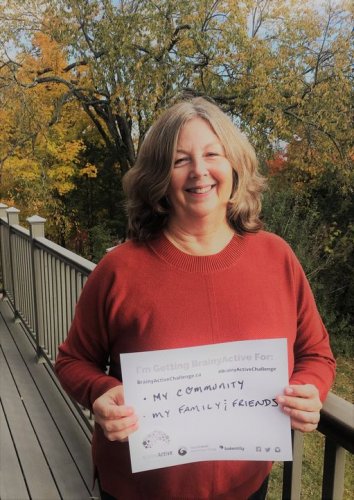 I'm Getting BrainyActive For:
BrainyActiveChallenge.ca #BrainyActiveChallenge
• MY COMMUNITY
• MY FAMILY & FRIENDS